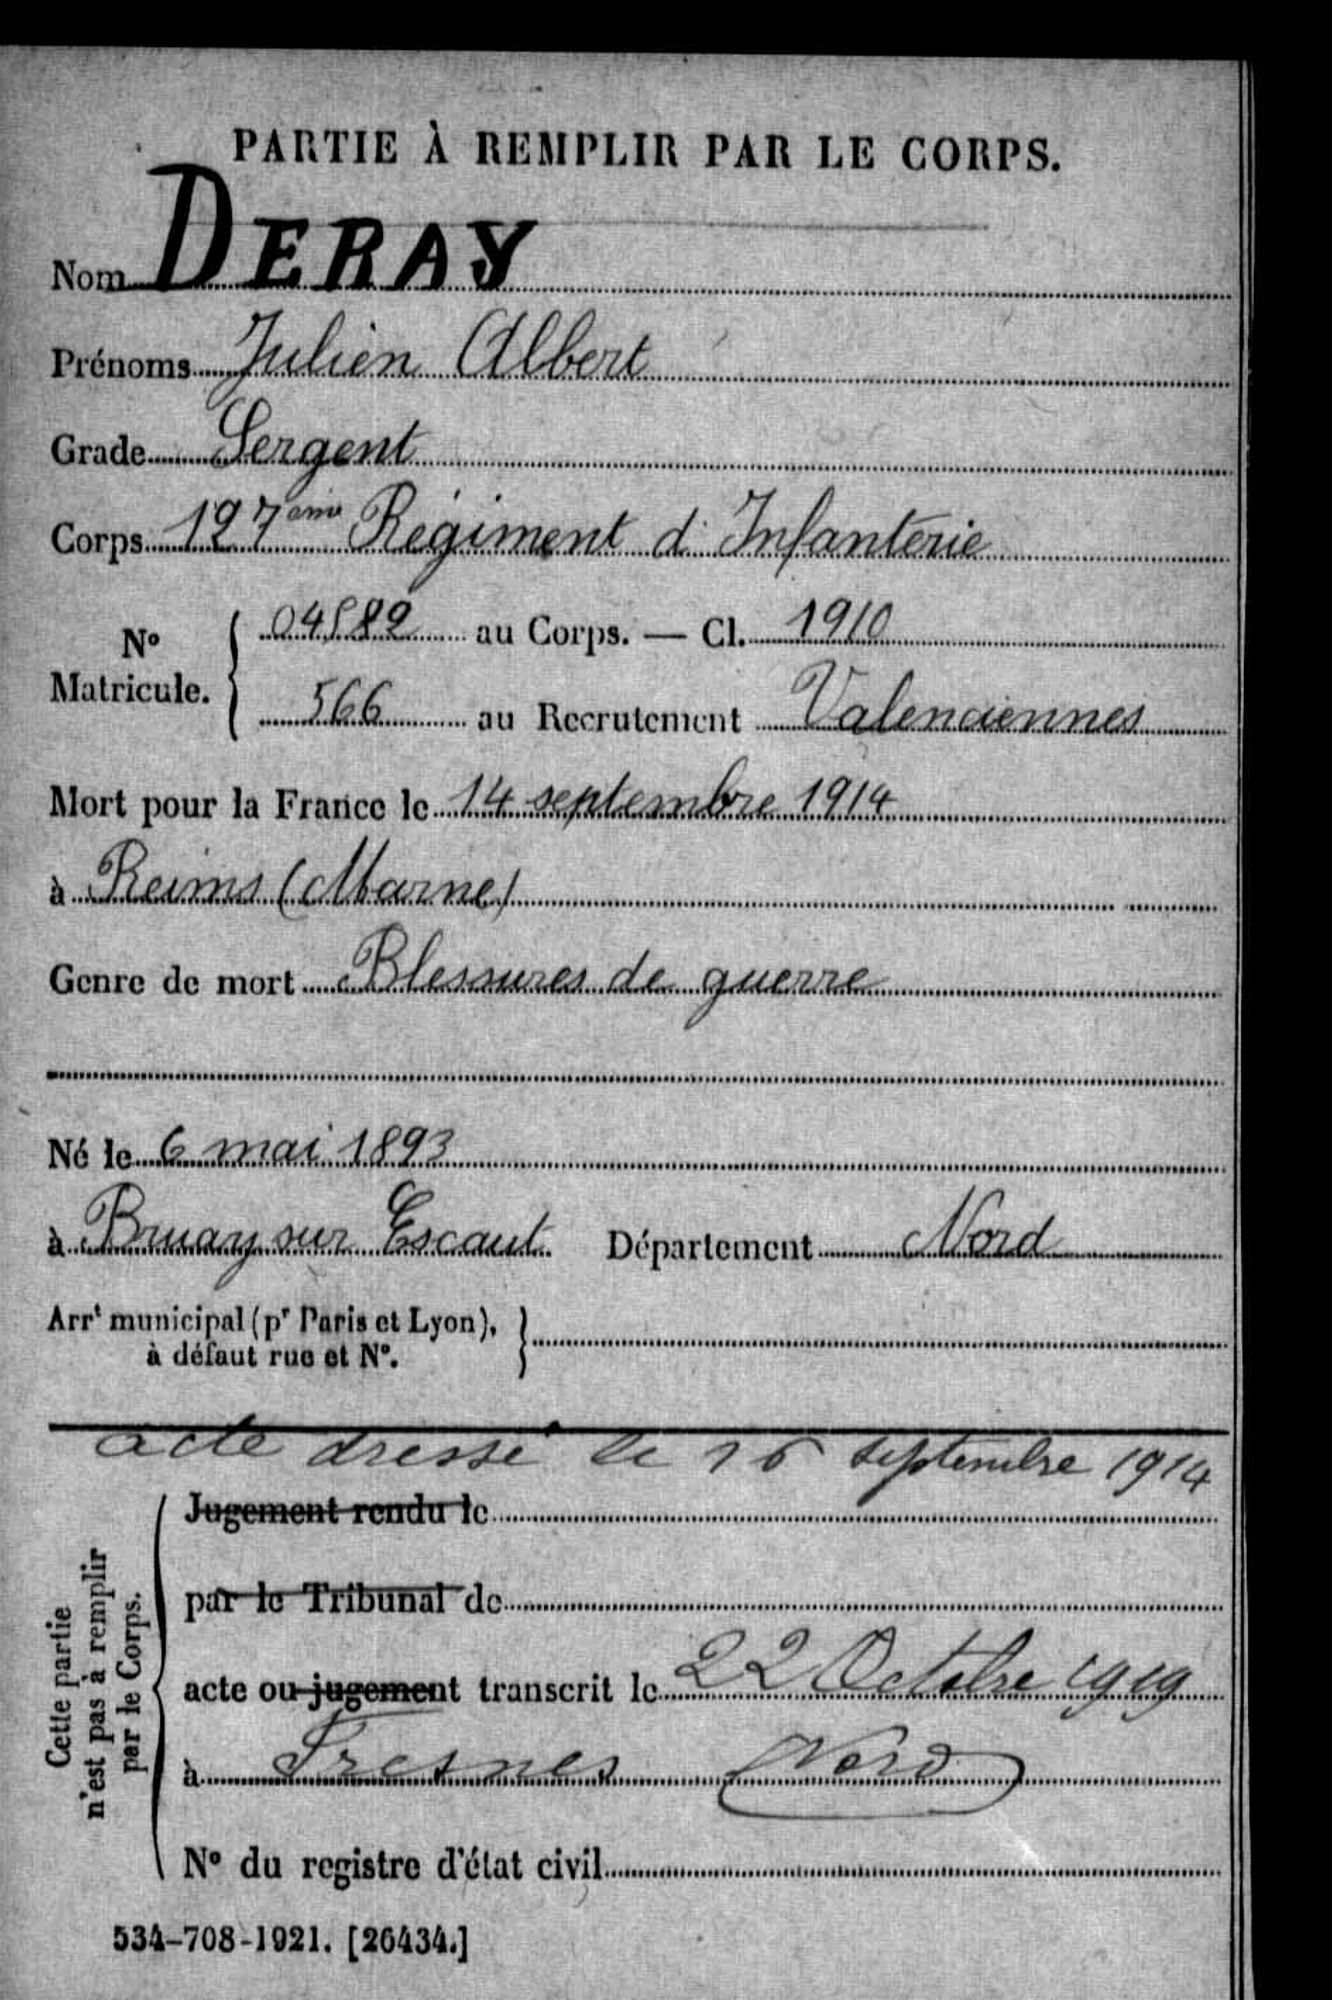 PARTIE À REMPLIR PAR LE CORPS.
Nom DERAY
Prénoms Julien Albert
Grade Sergent
Corps 127ème Régiment d'Infanterie
N° Matricule. { 04582 au Corps. — Cl. 1910
566 au Recrutement Valenciennes
Mort pour la France le 14 septembre 1914
à Reims (Marne)
Genre de mort Blessures de guerre
Né le 6 mai 1893
à Bruay sur Escaut Département Nord
Arrt municipal (pr Paris et Lyon), }
à défaut rue et N°.
acte dressé le 16 septembre 1914
Cette partie
n'est pas à remplir
par le Corps.
Jugement rendu le
par le Tribunal de
acte ou jugement transcrit le 22 Octobre 1919
à Fresnes Nord
N° du registre d'état civil
534-708-1921. [26434.]